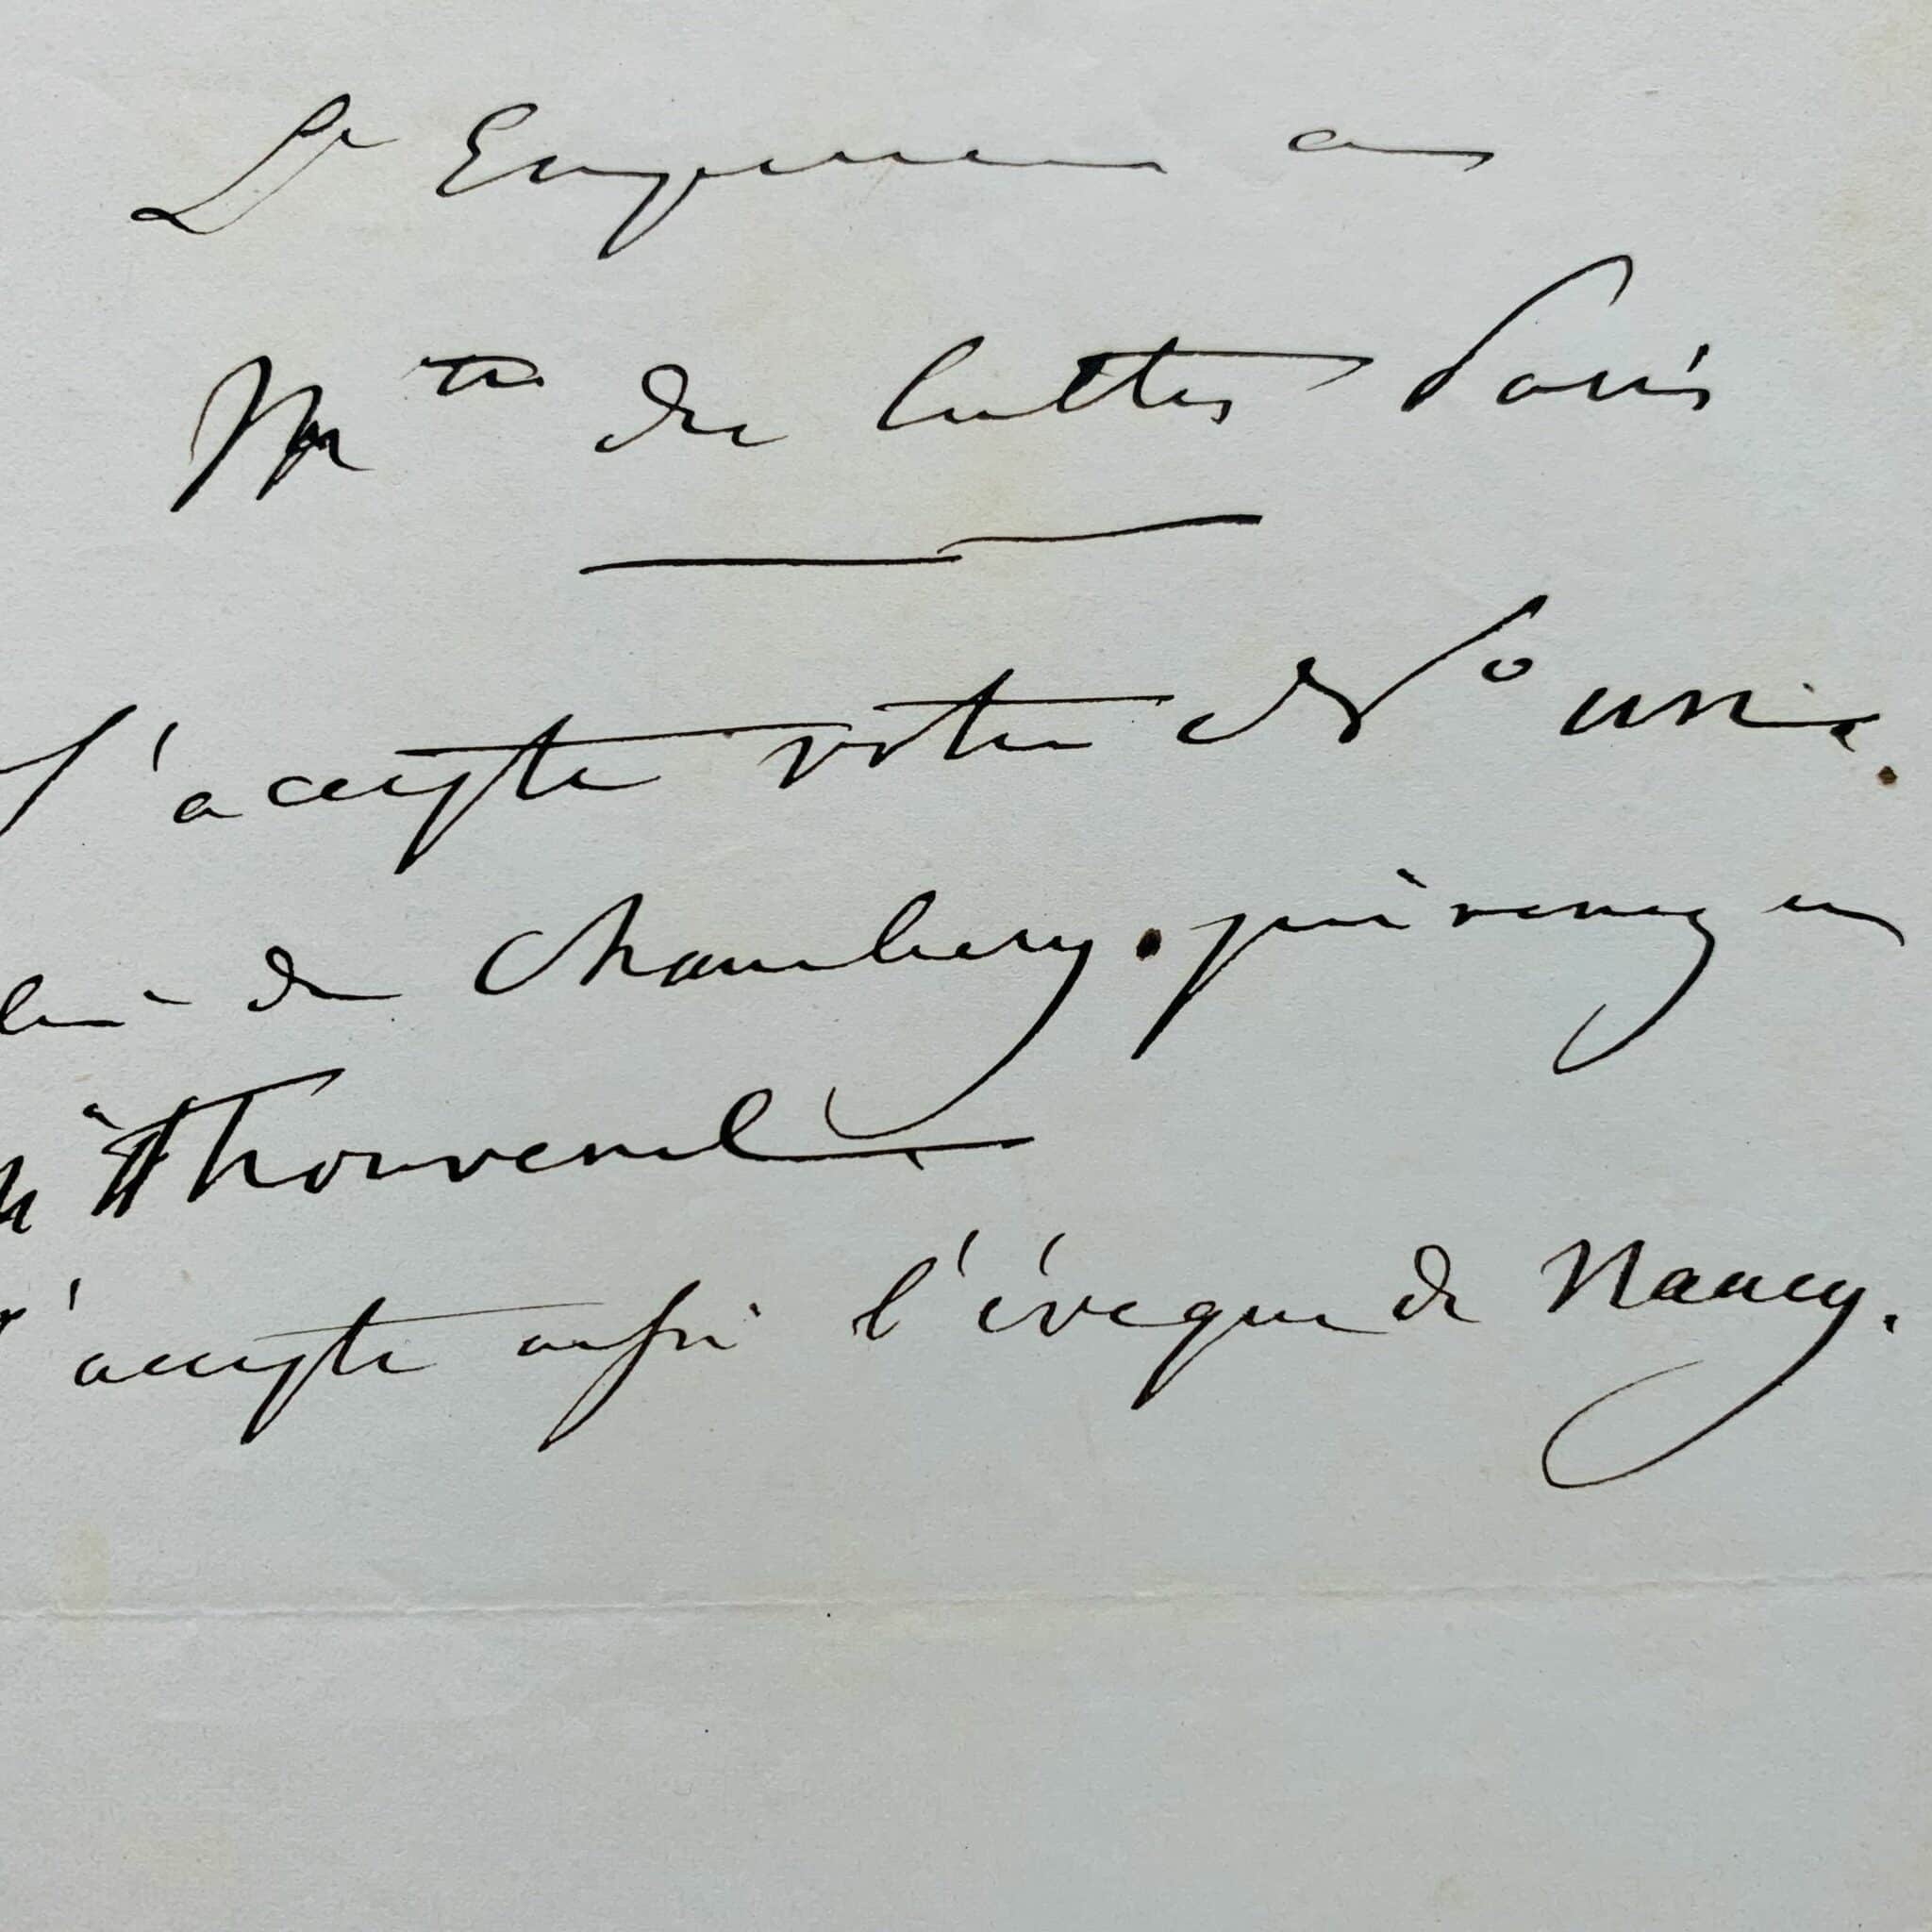 L'Empereur au
Mtre des Cultes Paris
J'accepte votre No un
de Chambery. prévenez en
Mr Thouvenel
J'accepte aussi l'évêque de Nancy.